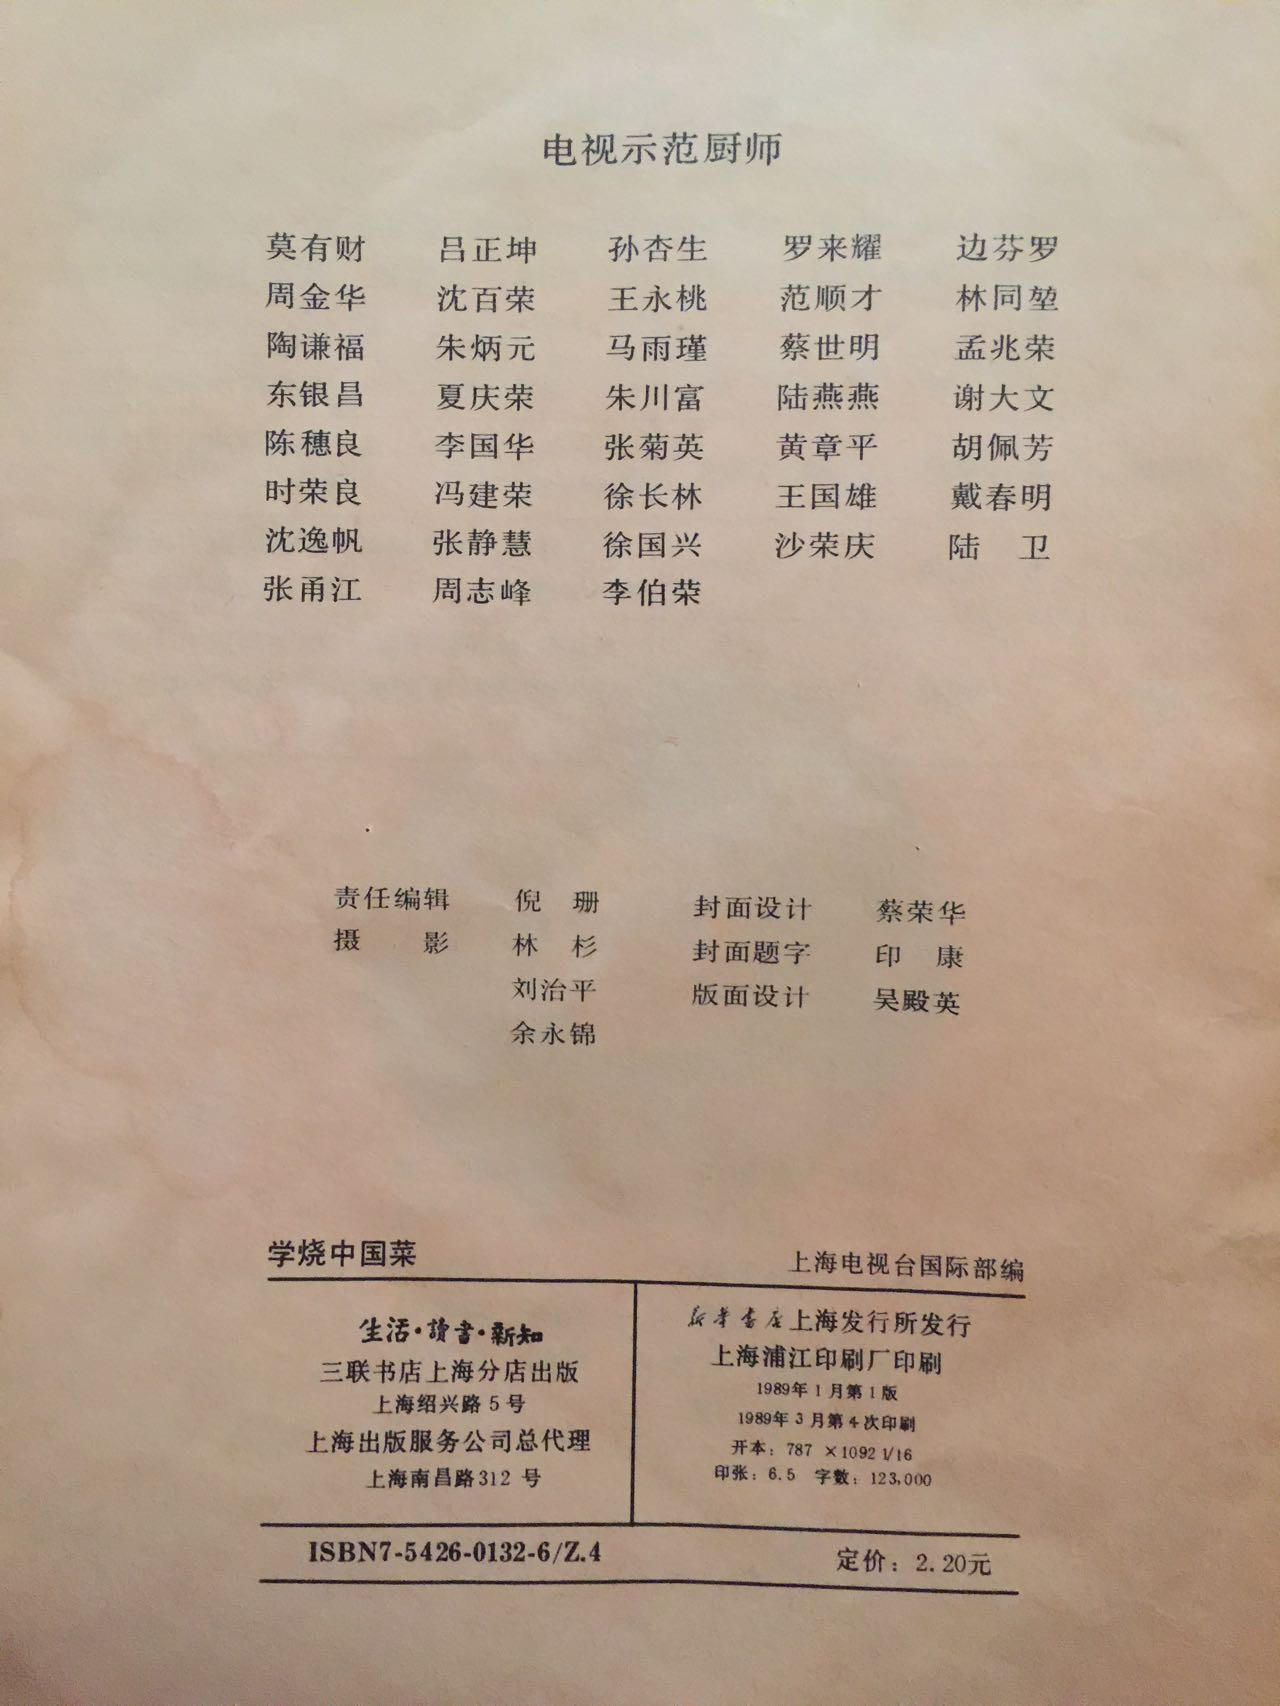 电视示范厨师
莫有财 吕正坤 孙杏生 罗来耀 边芬罗
周金华 沈百荣 王永桃 范顺才 林同堃
陶谦福 朱炳元 马雨瑾 蔡世明 孟兆荣
东银昌 夏庆荣 朱川富 陆燕燕 谢大文
陈穗良 李国华 张菊英 黄章平 胡佩芳
时荣良 冯建荣 徐长林 王国雄 戴春明
沈逸帆 张静慧 徐国兴 沙荣庆 陆 卫
张甬江 周志峰 李伯荣
责任编辑 倪 珊 封面设计 蔡荣华
摄 影 林 杉 封面题字 印 康
刘治平 版面设计 吴殿英
余永锦
学烧中国菜 上海电视台国际部编
生活·讀書·新知
三联书店上海分店出版
上海绍兴路5号
上海出版服务公司总代理
上海南昌路312号
新华书店上海发行所发行
上海浦江印刷厂印刷
1989年1月第1版
1989年3月第4次印刷
开本：787×1092 1/16
印张：6.5 字數：123,000
ISBN7-5426-0132-6/Z.4 定价：2.20元